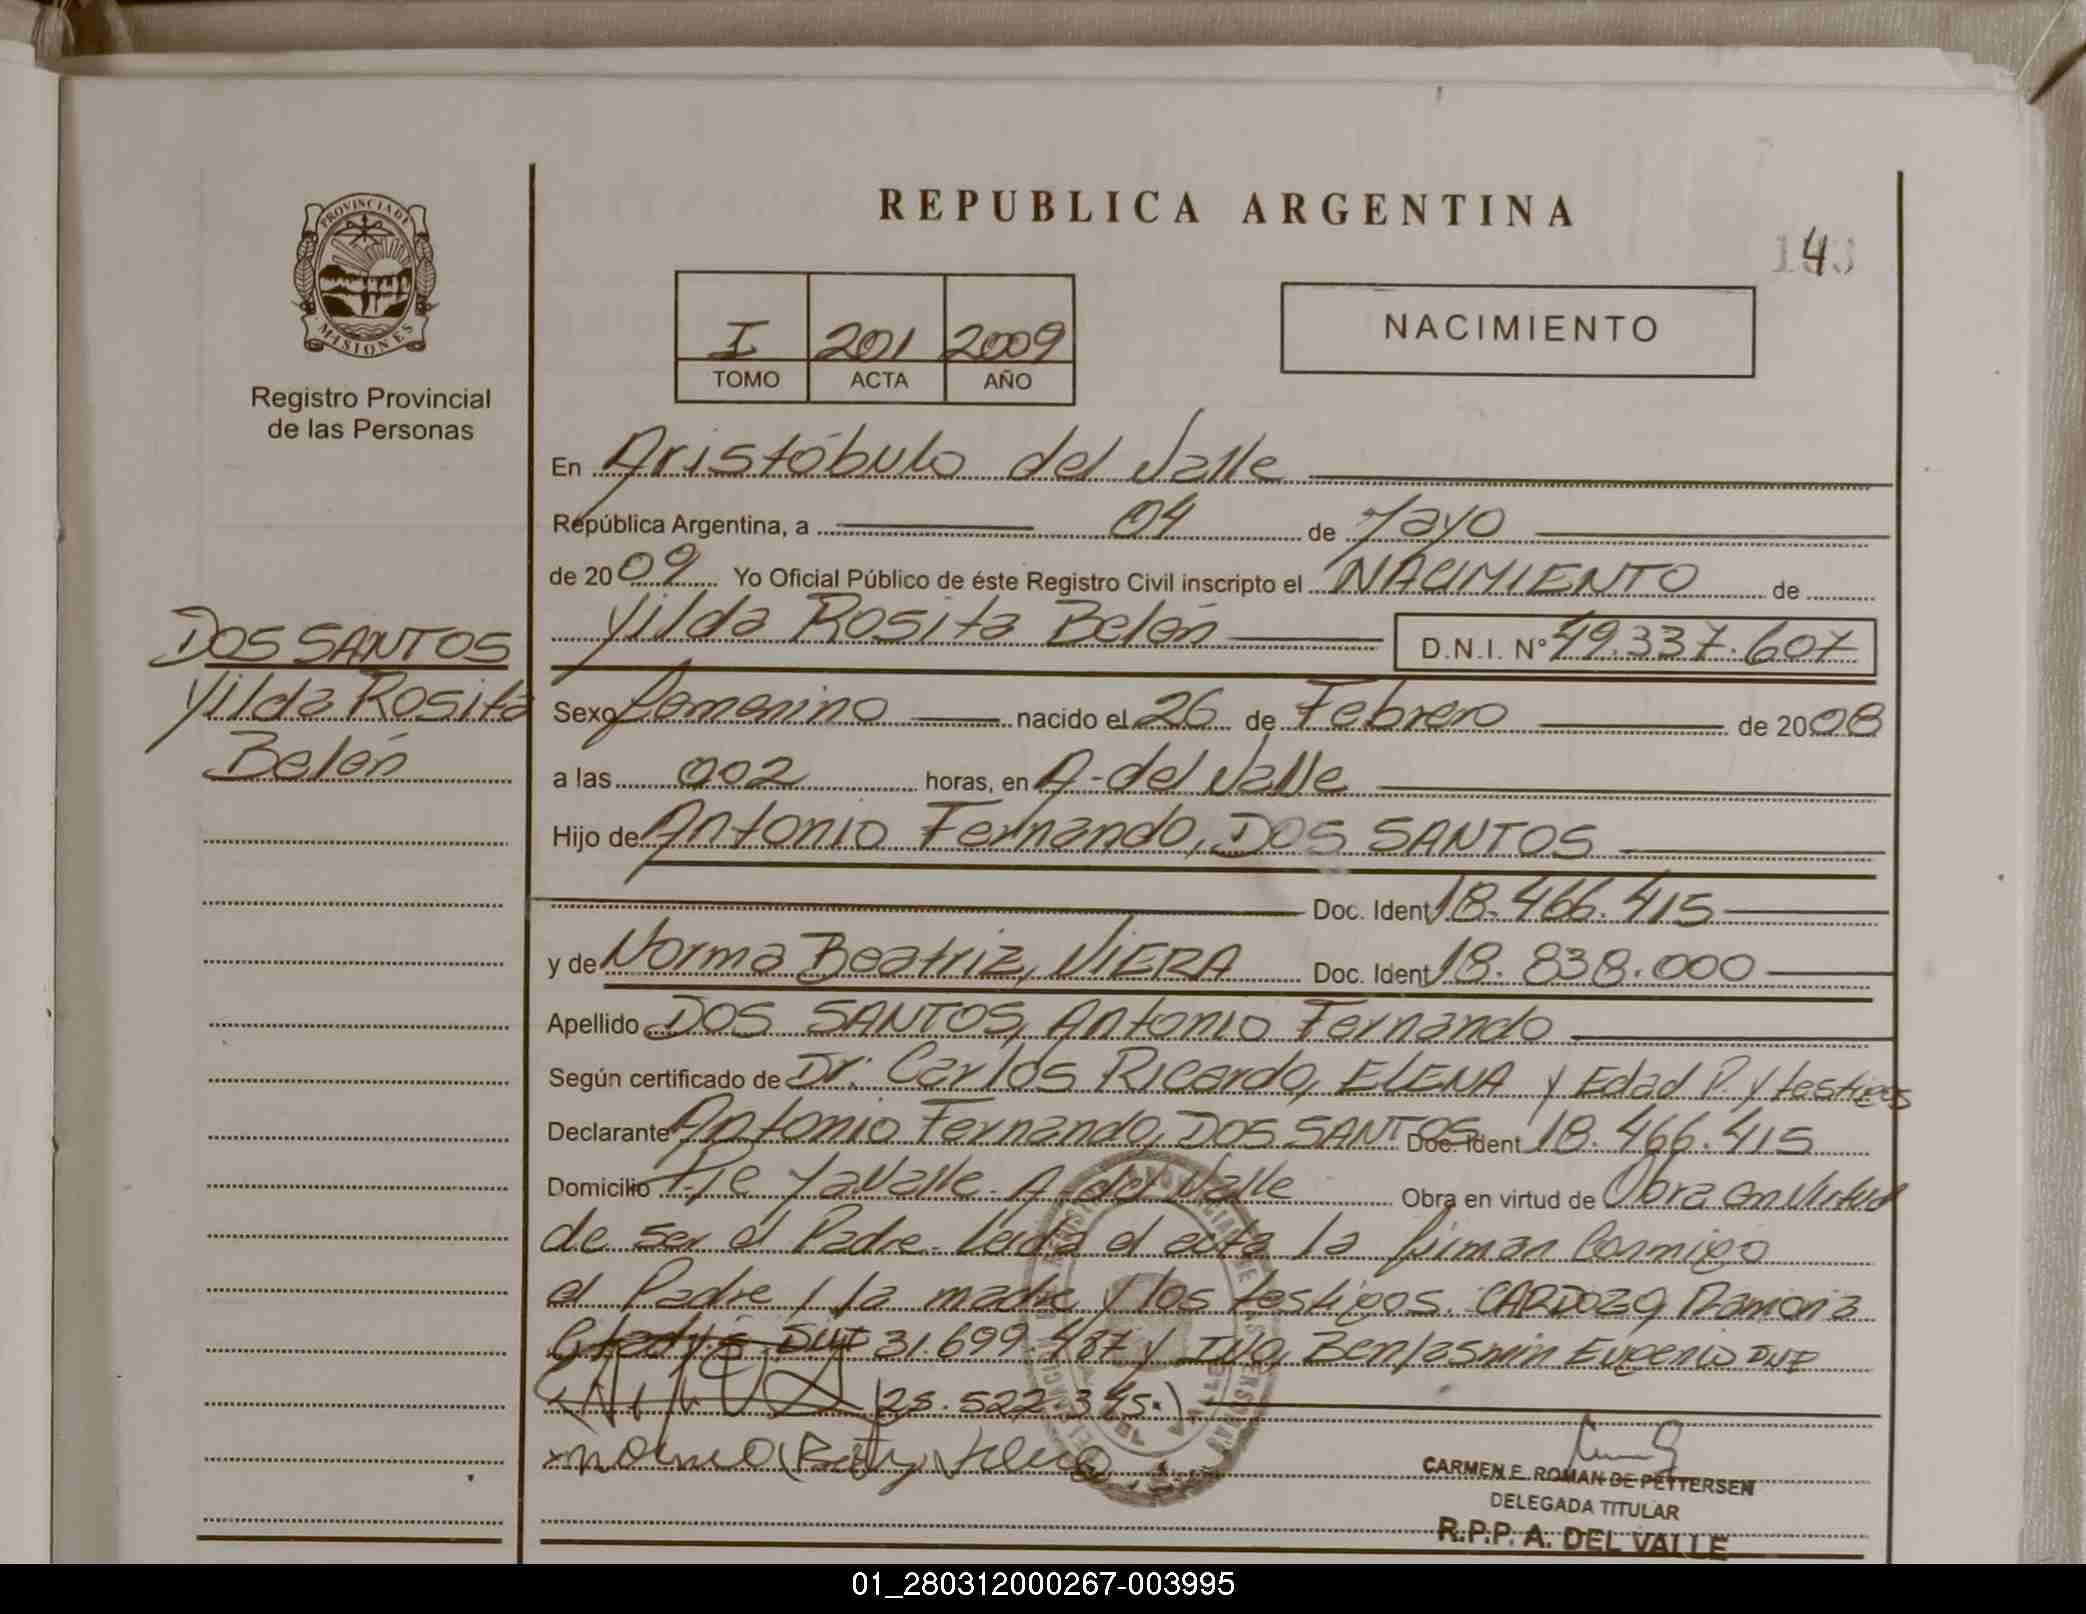 REPUBLICA ARGENTINA
4
PROVINCIA DE
MISIONES
Registro Provincial
de las Personas
I 201 2009
TOMO ACTA AÑO
NACIMIENTO
En Aristóbulo del Valle
República Argentina, a 04 de Mayo
de 2009 Yo Oficial Público de éste Registro Civil inscripto el NACIMIENTO de
Yilda Rosita Belén D.N.I. N° 49.337.607
DOS SANTOS
Yilda Rosita
Belén
Sexo femenino nacido el 26 de Febrero de 2008
a las 002 horas, en A. del Valle
Hijo de Antonio Fernando, DOS SANTOS
Doc. Ident 18.466.415
y de Norma Beatriz, VIERA Doc. Ident 18.838.000
Apellido DOS SANTOS, Antonio Fernando
Según certificado de Dr. Carlos Ricardo, ELENA y Edad P. y testigos
Declarante Antonio Fernando, DOS SANTOS Doc. Ident 18.466.415
Domicilio Pje A. del Valle Obra en virtud de Obra en virtud
de ser el Padre. Leida el acta la firman conmigo
el Padre, la madre y los testigos. CARDOZO, Ramona
DNI 31.699.487 y Benjasmin Eugenio DNI
(25.522.345.)
CARMEN E. ROMAN DE PETTERSEN
DELEGADA TITULAR
R.P.P. A. DEL VALLE
01_280312000267-003995